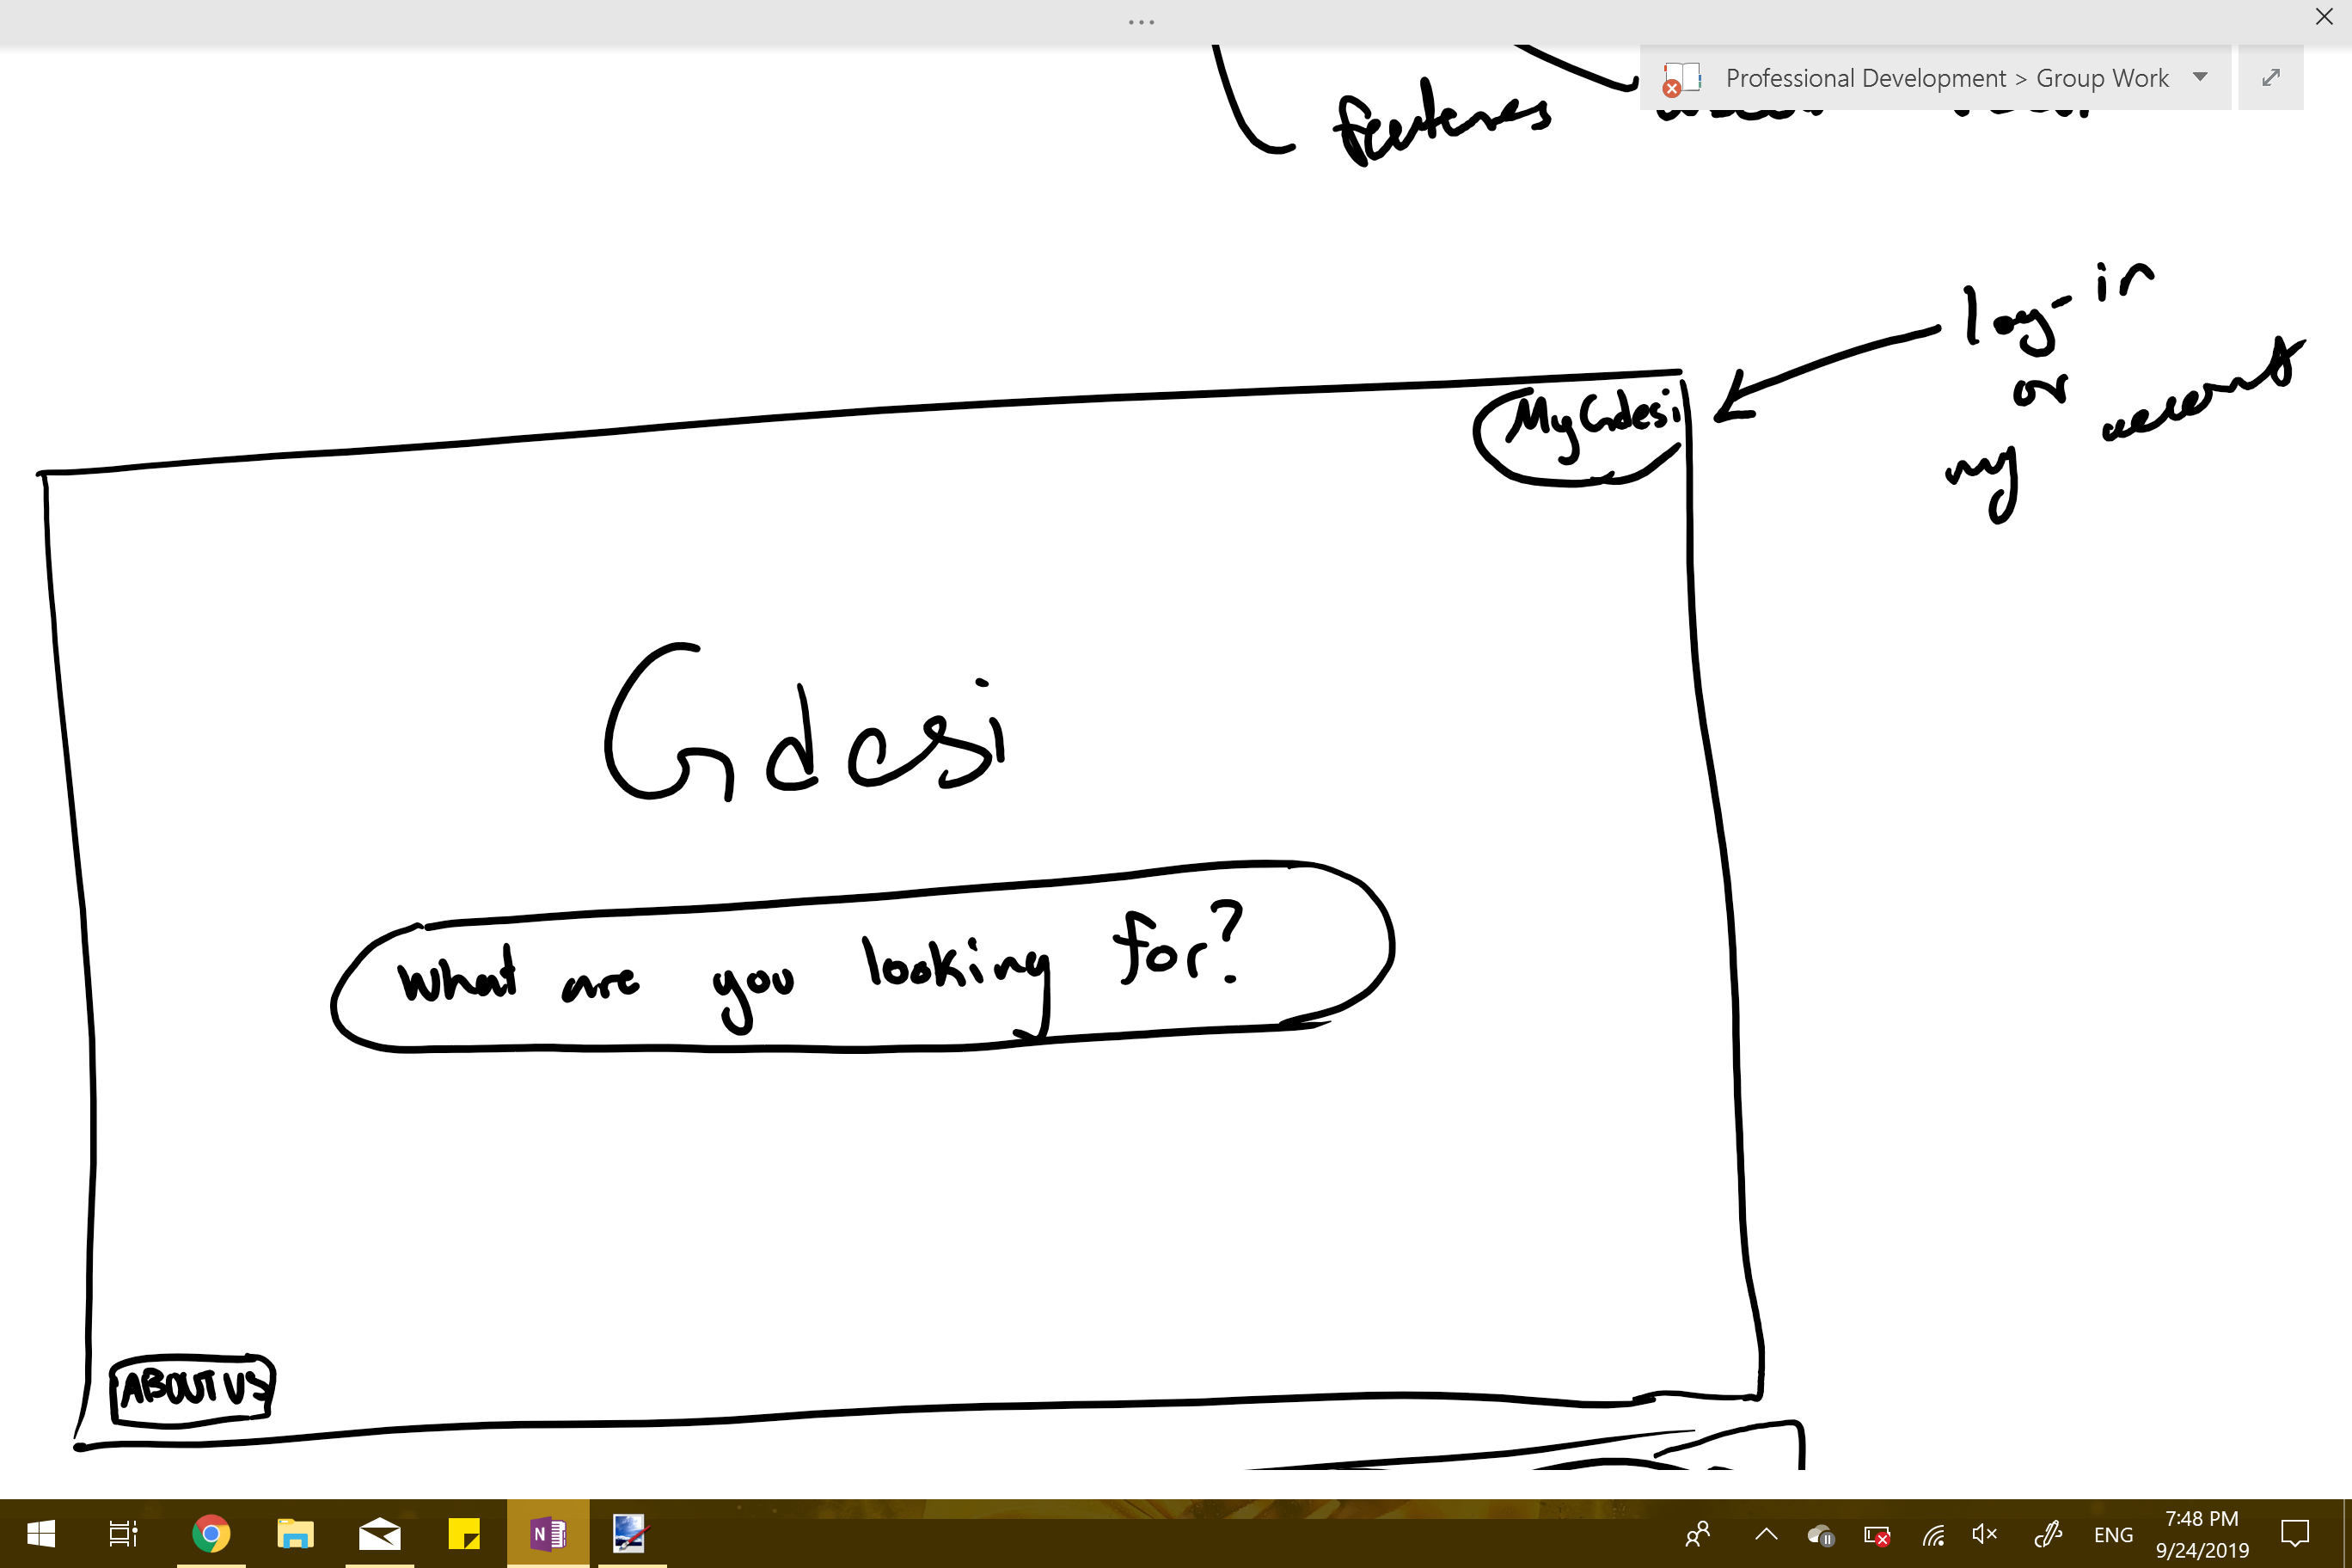 Professional Development > Group Work
features
log-in
or
my account
MyGdesi
Gdesi
What are you looking for?
ABOUT US
ENG
7:48 PM
9/24/2019